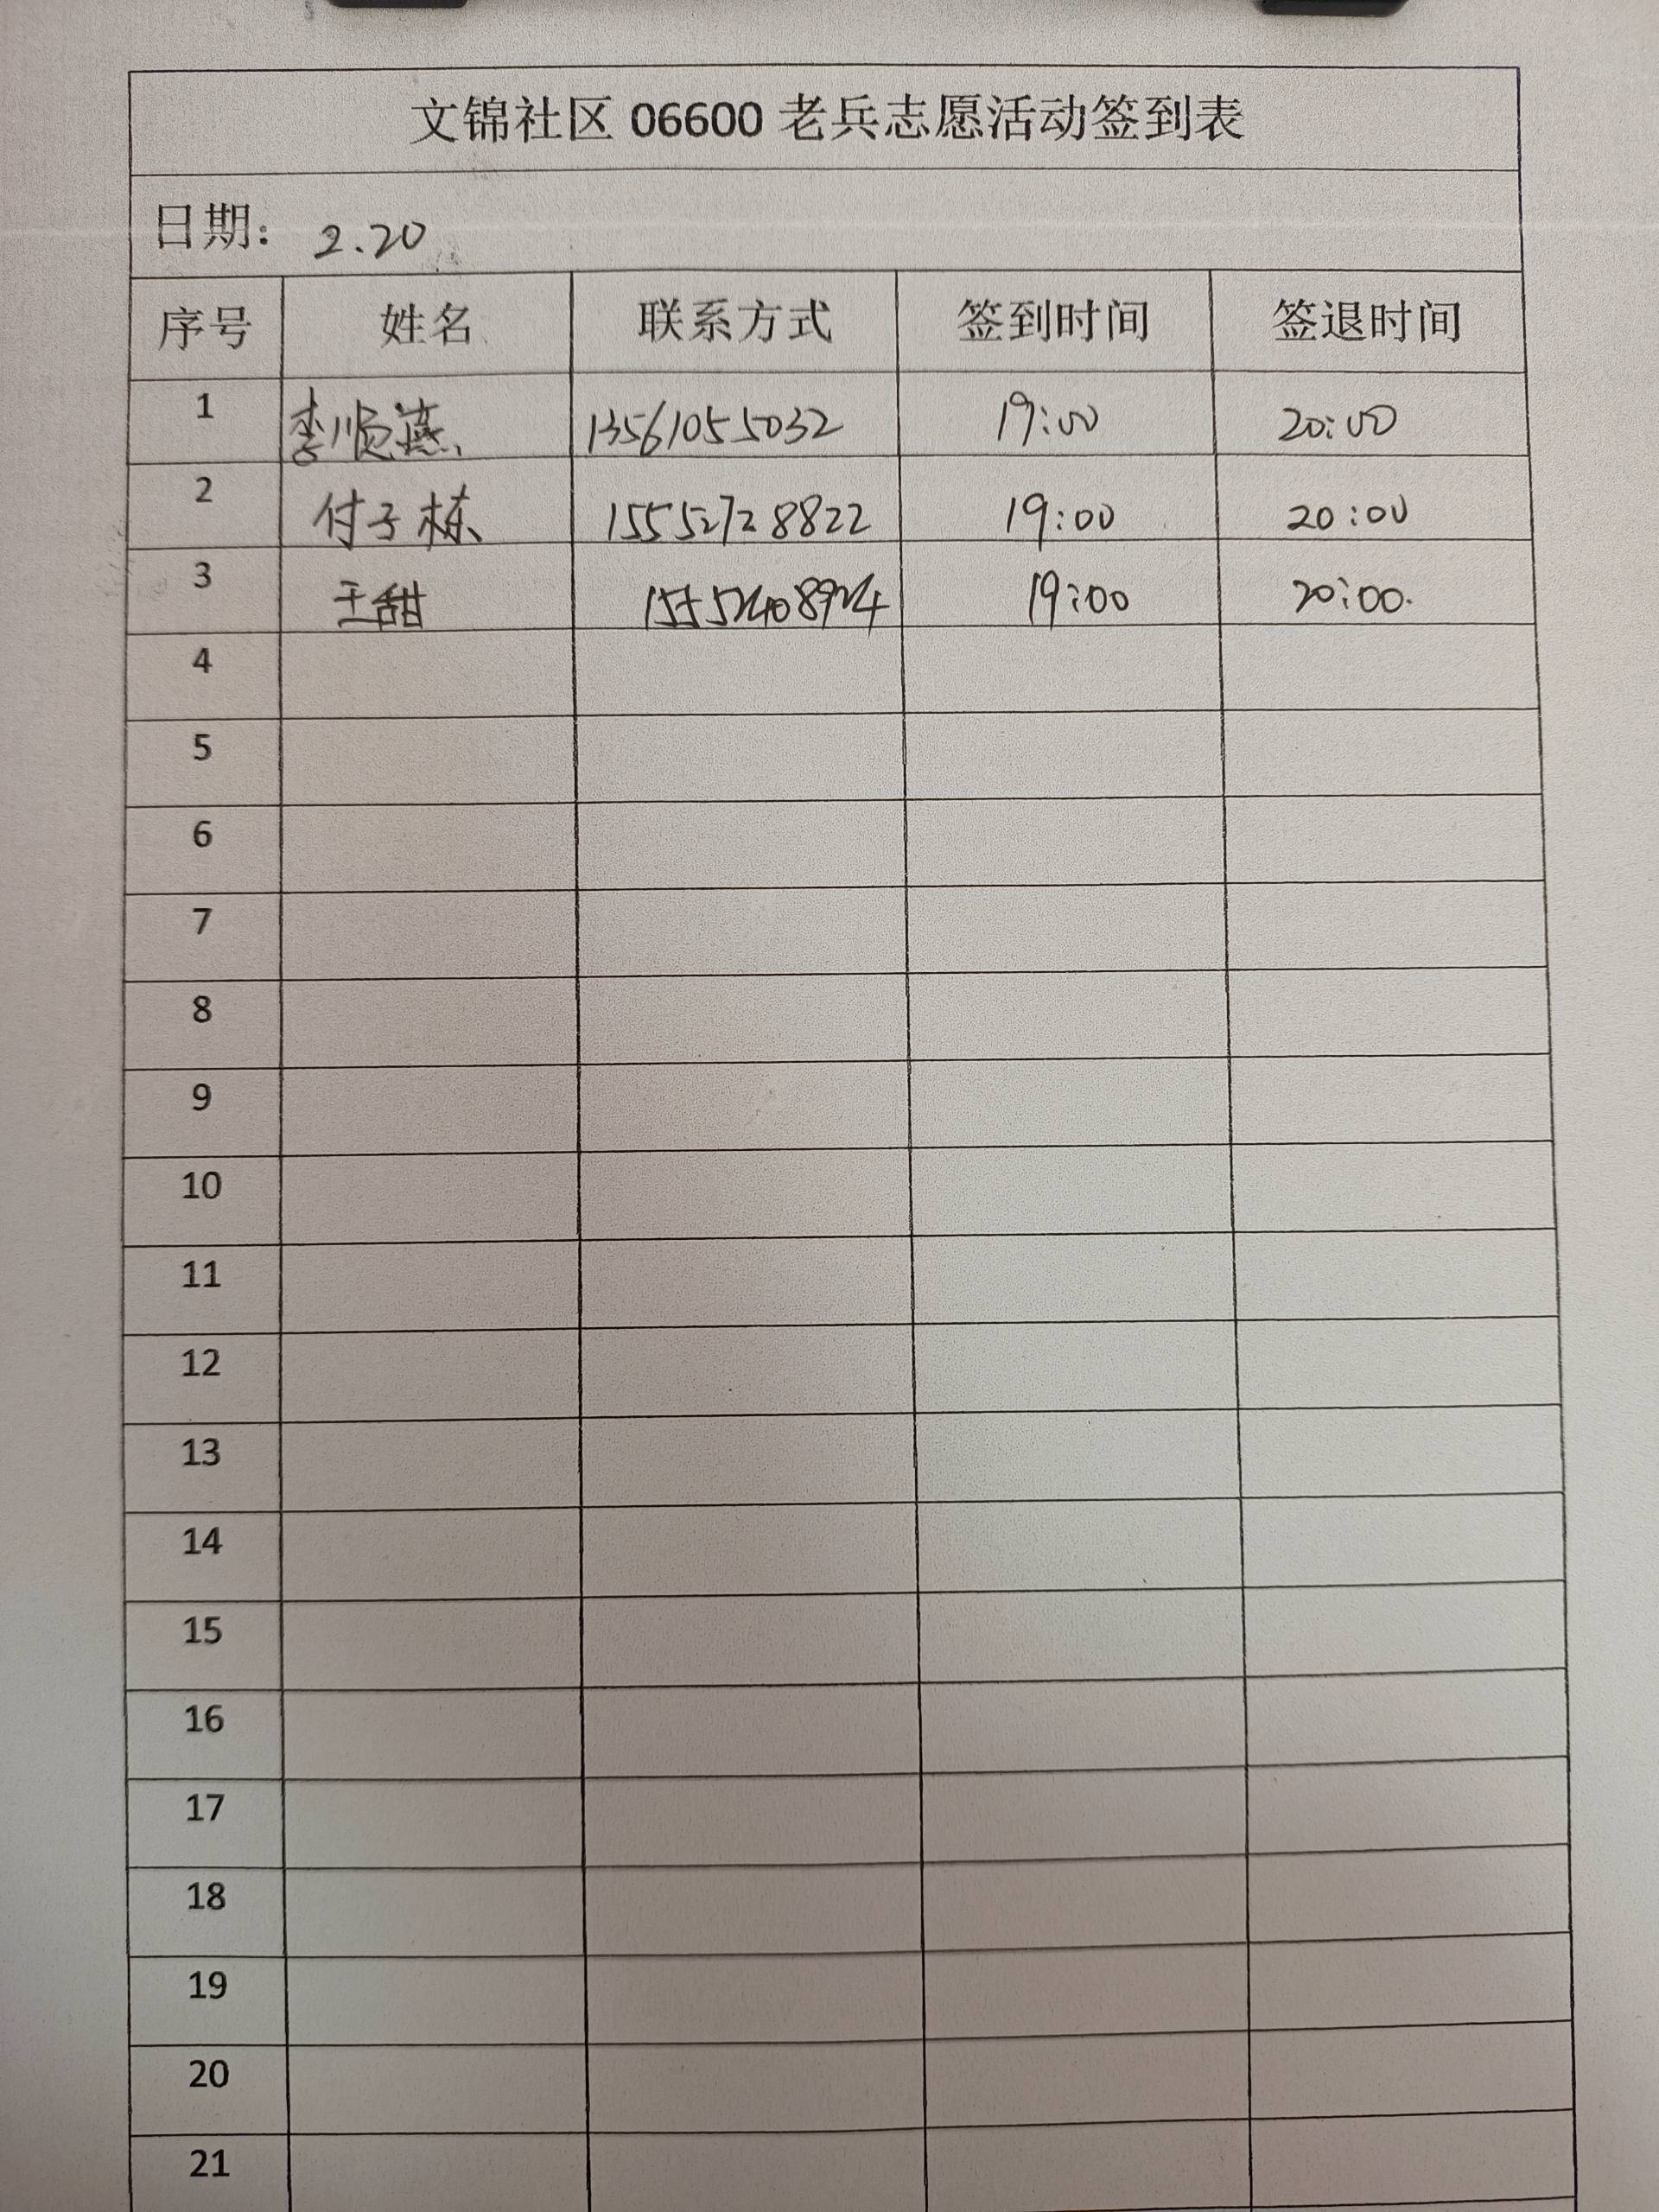 文锦社区 06600 老兵志愿活动签到表
日期: 2.20
序号 姓名 联系方式 签到时间 签退时间
1 李顺燕 13561055032 19:00 20:00
2 付子栋 15552728822 19:00 20:00
3 王甜 15552408924 19:00 20:00.
4
5
6
7
8
9
10
11
12
13
14
15
16
17
18
19
20
21